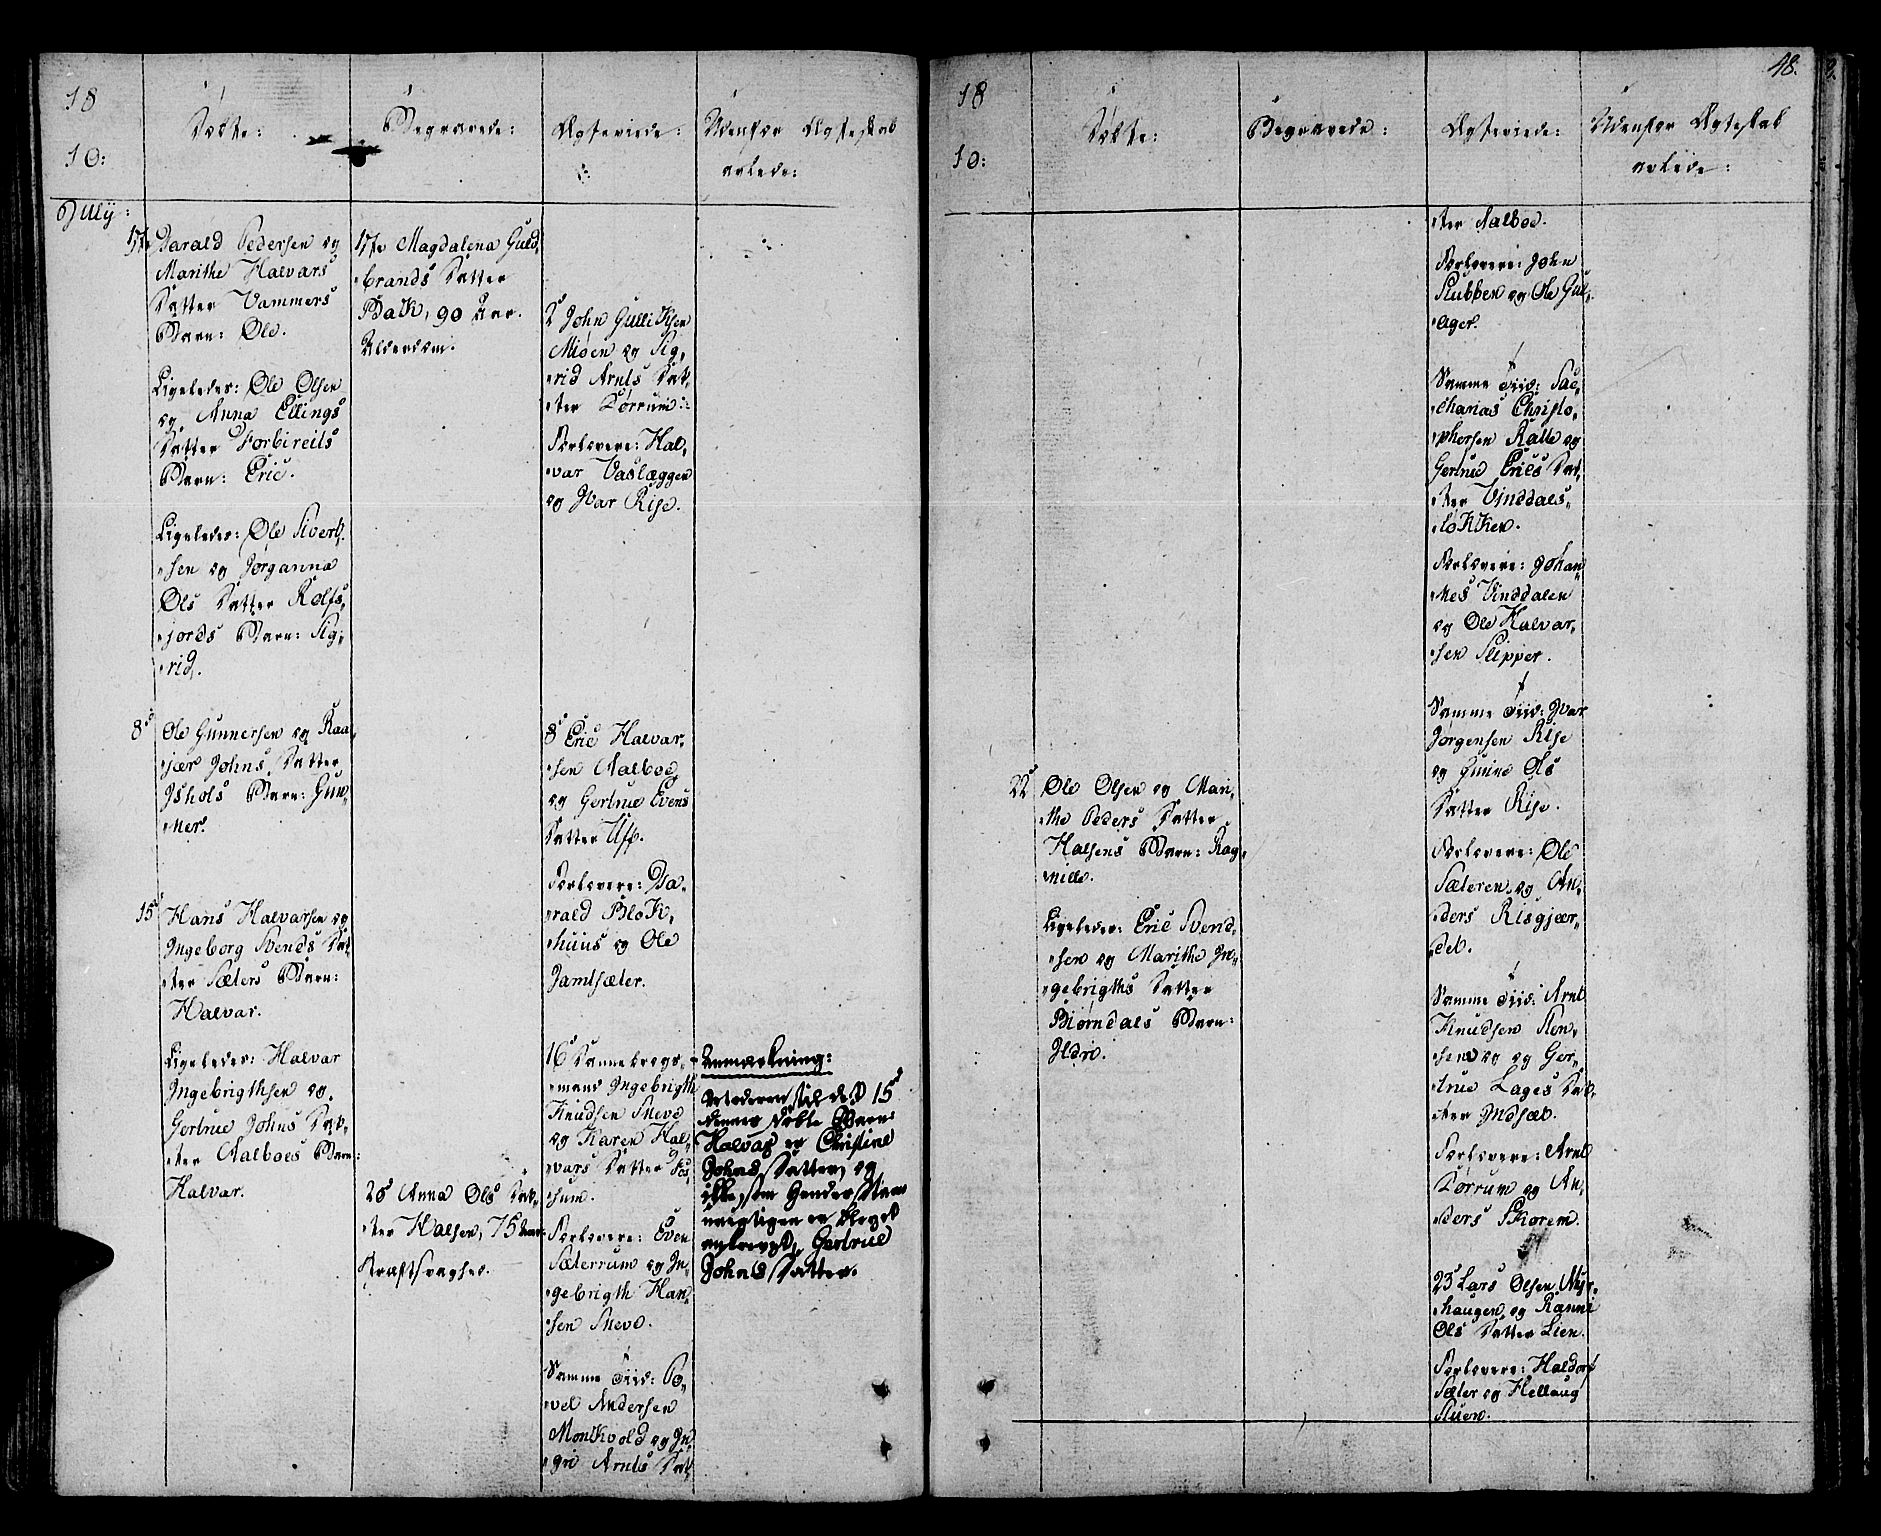 18
10:
Døbte:
Begravede:
Ægteviede:
Udenfor Ægteskab
avlede:
July:
1ste Harald Pedersen og
Marithe Halvars
Datter Vammers
Barn: Ole.
Ligeledes: Ole Olsen
og Anna Ellings
Datter Forbireits
Barn: Eric.
Ligeledes: Ole Sivert-
sen og Jørganna
Ols Datter Rolfs-
jords Barn: Sig-
rid.
8d Ole Gunnersen og Raa-
jær Johns Datter
Ishols Barn: Gun-
ner.
15d Hans Halvarsen og
Ingeborg Svends Dat-
ter Sæters Barn:
Halvar.
Ligeledes: Halvar
Ingebrigthsen og
Gertrue Johns Dat-
ter Aalboes Barn:
Halvar.
1ste Magdalena Guld-
brands Datter
Bak, 90 Aar.
Alderdom.
28d Anna Ols Dat-
ter Halsen, 75 Aar.
Kraftsvaghed.
2d John Gulliksen
Miøen og Sig-
rid Arnts Dat-
ter Dørrum.
Forlovere: Hal-
var Vaslæggen
og Ivar Rise.
8d Eric Halvar-
sen Aalboe
og Gertrue Evens
Datter Uff.
Forlovere: Ha-
rald Blok-
huus og Ole
Jamtsæter.
16d Dannebrogs-
mand Ingebrigth
Knudsen Meve
og Karen Hal-
vars Datter Fos-
sum.
Forlovere: Even
Sæterrum og In-
gebrigth Han-
sen Meve.
Samme Tiid: Po-
vel Andersen
Monkvold og In-
gri Arnts Dat-
Anmærkning:
Moderen til det 15d
dennes døbte Barn
Halvar er Christine
Johns Datter, og
ikke, som
urigtigen er bleven
anført, Gertrue
Johns Datter.
48.
18
10:
Døbte:
Begravede:
Ægteviede:
Udenfor Ægteskab
avlede:
22d Ole Olsen og Mari-
the Peders Datter
Halsens Barn: Rag-
nille.
Ligeledes: Eric Svend-
sen og Marithe In-
gebrigths Datter
Biørndals Barn:
Ildri.
ter Aalboe.
Forlovere: John
Stubben og Ole Gul-
ager.
Samme Tiid: Sac-
charias Christo-
phersen Ralle og
Gertrue Erics Dat-
ter Vinddals-
løkken.
Forlovere: Johan-
nes Vinddalen
og Ole Halvar-
sen Slipper.
Samme Tiid: Ivar
Jørgensen Rise
og Guine Ols
Datter Rise.
Forlovere: Ole
Sæteren og An-
ders Risgjær-
det.
Samme Tiid: Arnt
Knudsen Sten-
sen og Ger-
true Lages Dat-
ter Indset.
Forlovere: Arnt
Dørrum og An-
ders Skorem.
23d Lars Olsen Myr-
haugen og Rønnie
Ols Datter Lien.
Forlovere: Haldor
Sæter og Hellaug
Stuen.